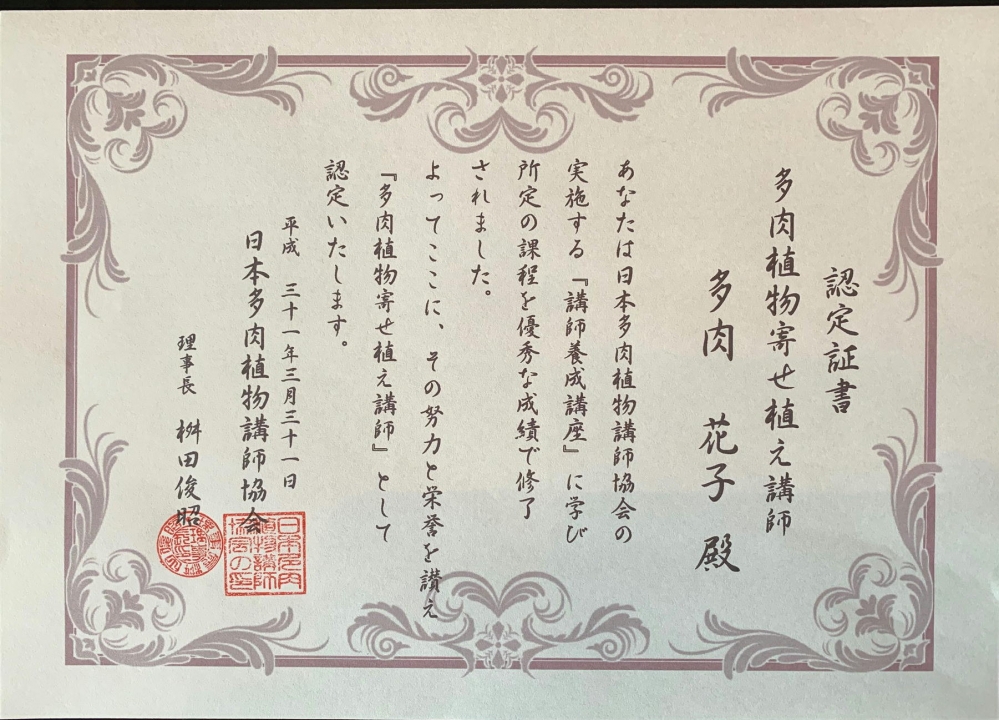 認定証書
多肉植物寄せ植え講師
多肉 花子 殿
あなたは日本多肉植物講師協会の
実施する『講師養成講座』に学び
所定の課程を優秀な成績で修了
されました。
よってここに、その努力と栄誉を讃え
『多肉植物寄せ植え講師』として
認定いたします。
平成 三十一年三月三十一日
日本多肉植物講師協会
理事長 桝田俊昭
日本多肉
植物講師
協会の印